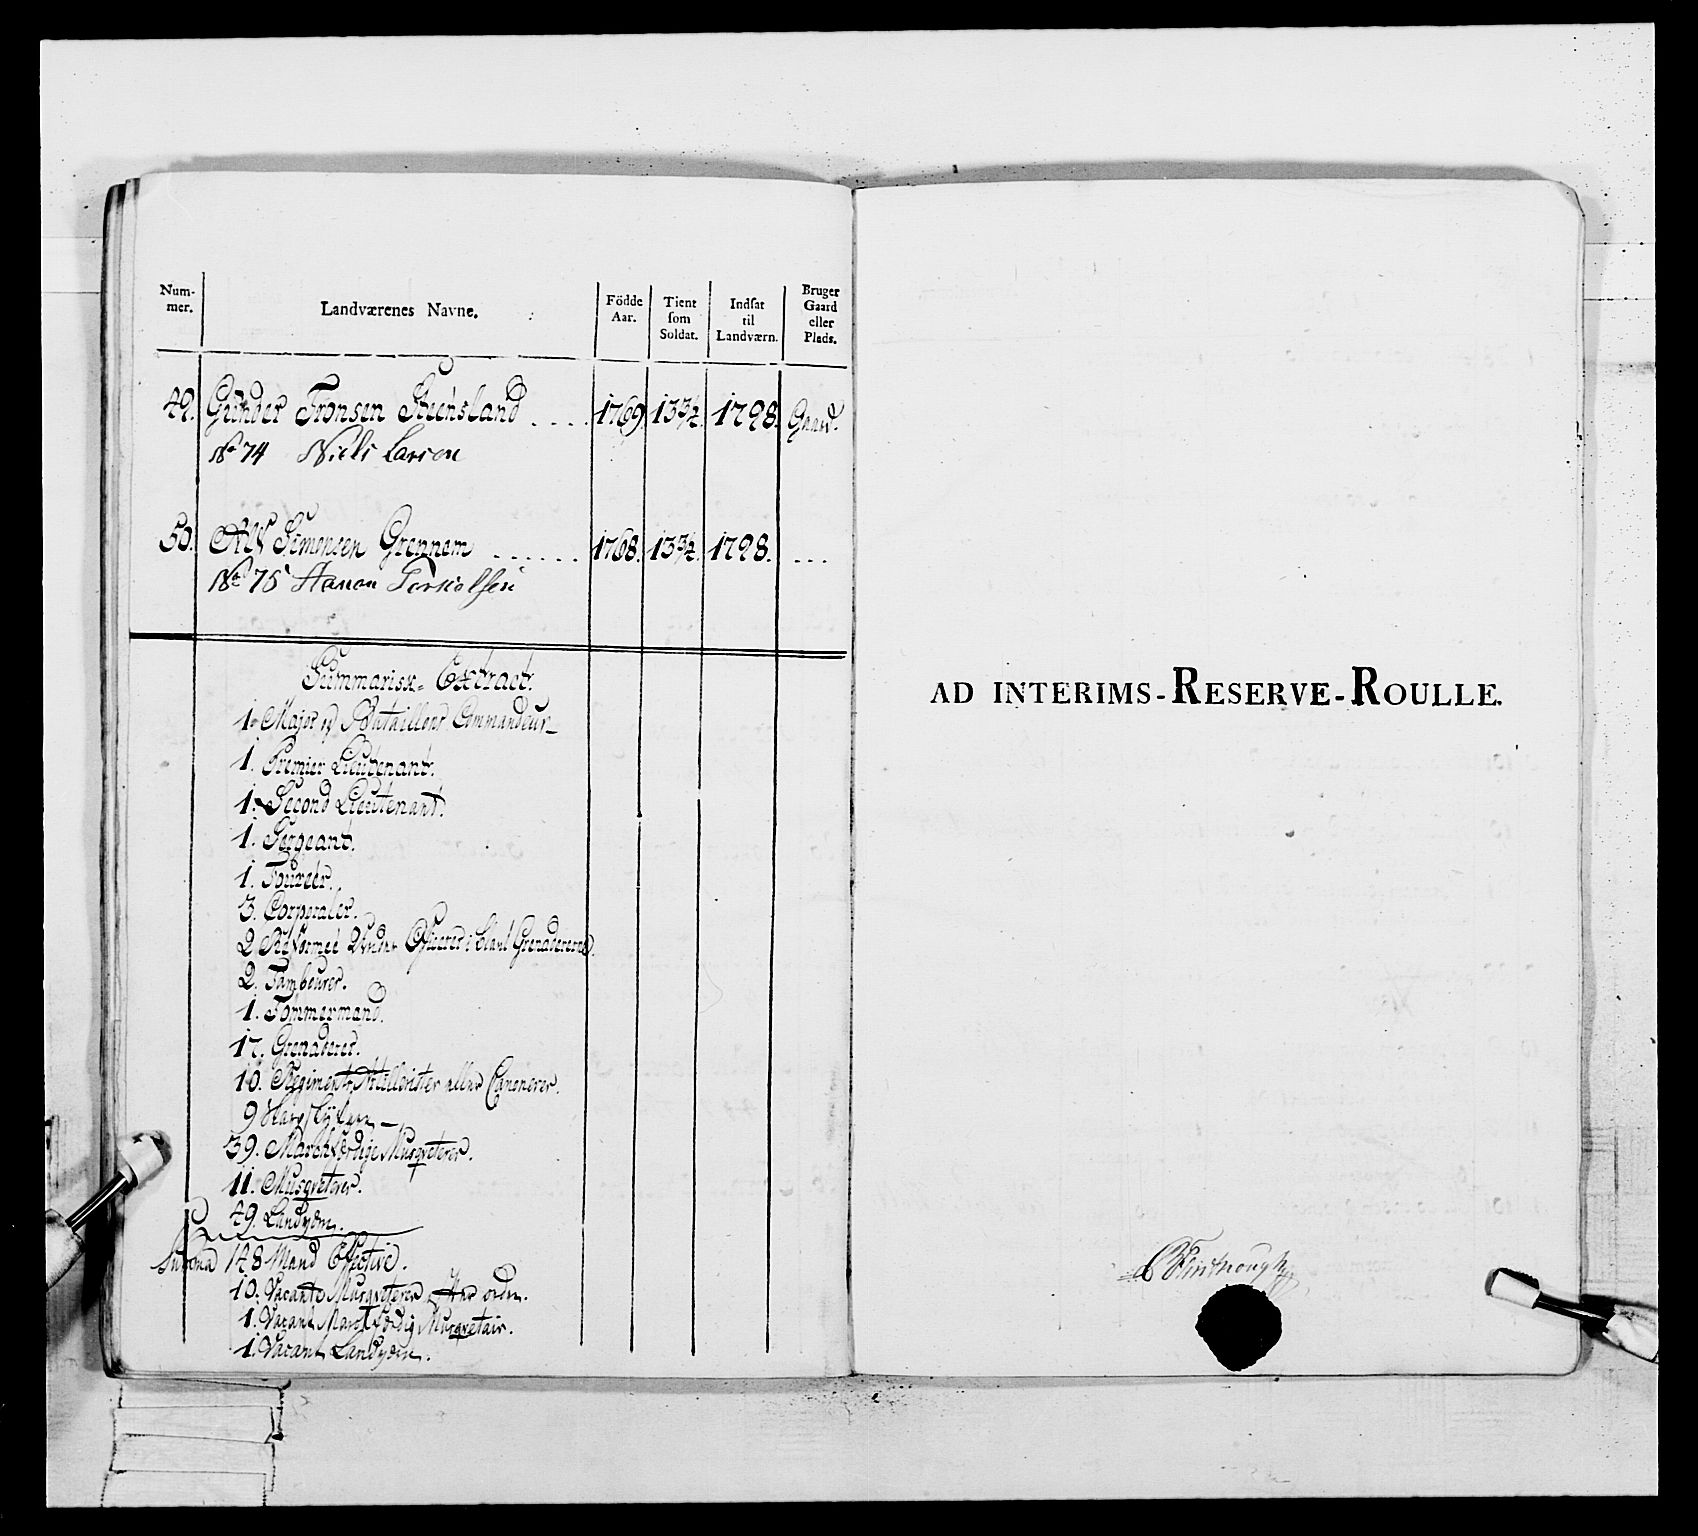 Num-
mer.
Landværenes Navne.
Födde
Aar.
Tient
som
Soldat.
Indsat
til
Landværn.
Bruger
Gaard
eller
Plads.
49. Gunder Tronsen Steensland .... 1769. 13¾. 1798. Gaard.
No 74 Niels Larsen
50. Alf Simonsen Grennem ...... 1768. 13¾. 1798. ...
No 75 Hanon Torkelsen
Summarisk Extract.
1. Major og Batallions Commandeur
1. Premier Lieutenant.
1. Second Lieutenant.
1. Sergeant.
1. Foureer.
3. Corporaler.
2 Reformeé Under Officerer i blant Grenadererne.
2. Tambourer.
1. Tömmermand.
17. Grenaderer.
10. Regiments Artillerister eller Canonerer.
9
39. Marchfærdige Musqveterer.
11. Musqveterer.
49. Landværn.
Summa 148 Mand Effective.
10. Vacante Musqveterer
1. Vacant Marchfærdig Musqvetair.
1. Vacant Landværn.
AD INTERIMS-RESERVE-ROULLE.